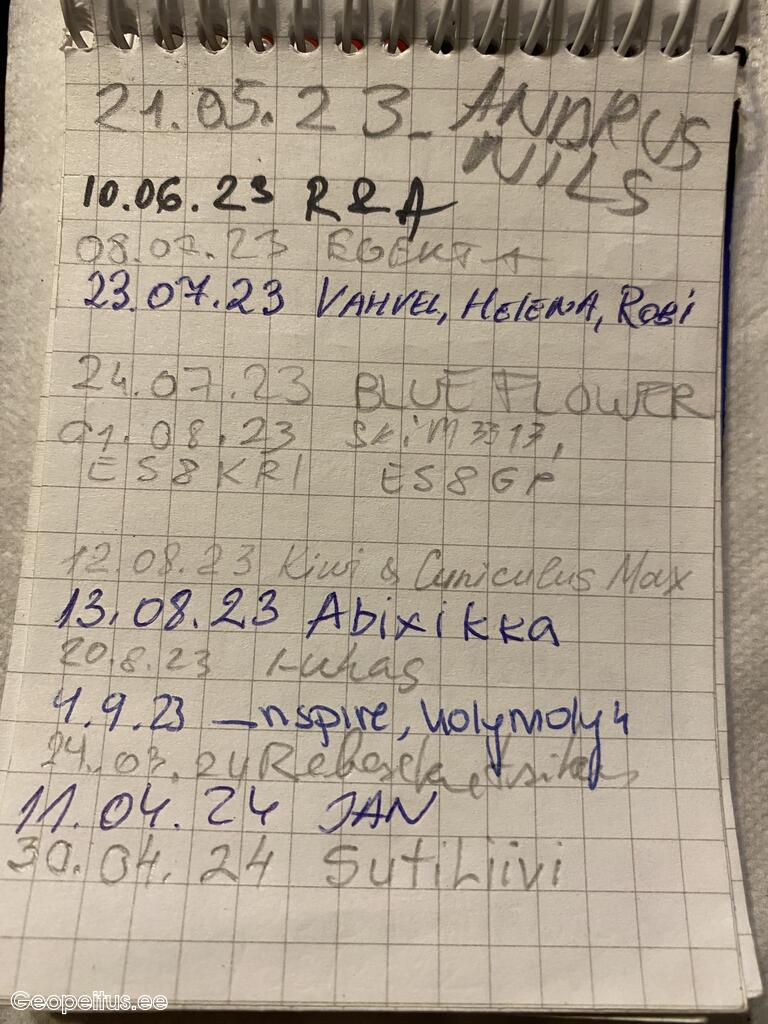 21.05.23_ ANDRUS
NILS
10.06.23 R&A
08.07.23
23.07.23 VAHVEL, HELENA, ROBI
24.07.23 BLUE FLOWER
01.08.23 SKiM3313,
ES8KRI ES8GP
12.08.23 Kiwi & Cuniculus Max
13.08.23 Abixikka
20.8.23 Lukas
4.9.23 _nspire, holymoly4
24.03.24
11.04.24 JAN
30.04.24 Sutiliivi
Geopeitus.ee